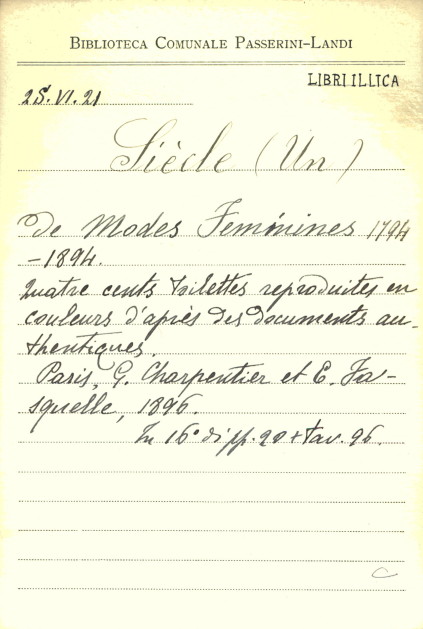 BIBLIOTECA COMUNALE PASSERINI-LANDI
LIBRI ILLICA
2S.VI.21
Siècle (Un)
de Modes Feminines 1794
-1894.
Quatre cents toilettes reproduites en
couleurs d'après des documents au-
thentiques.
Paris, G. Charpentier et E. Fa-
squelle, 1896.
In 16° di pp. 20 + tav. 96.
C